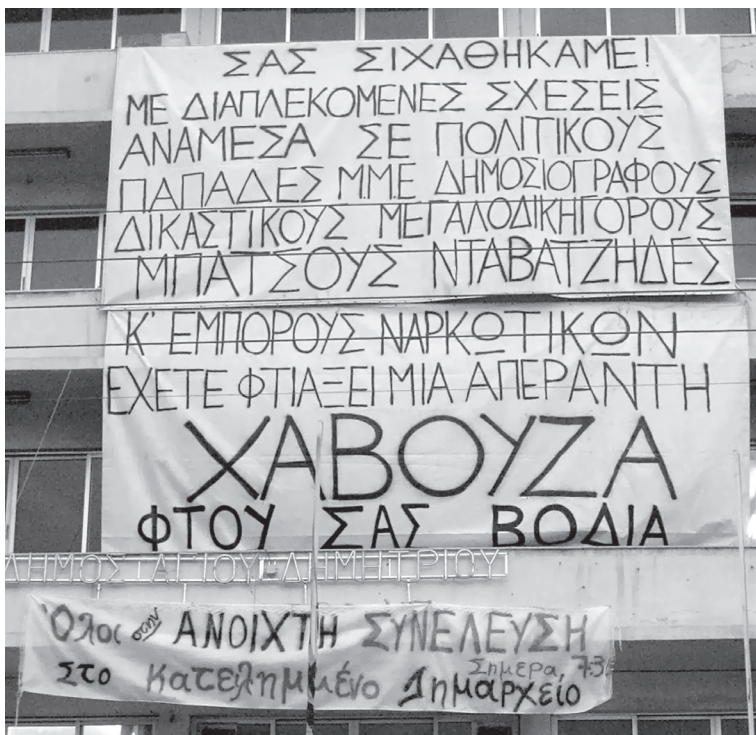 ΣΑΣ ΣΙΧΑΘΗΚΑΜΕ!
ΜΕ ΔΙΑΠΛΕΚΟΜΕΝΕΣ ΣΧΕΣΕΙΣ
ΑΝΑΜΕΣΑ ΣΕ ΠΟΛΙΤΙΚΟΥΣ
ΠΑΠΑΔΕΣ ΜΜΕ ΔΗΜΟΣΙΟΓΡΑΦΟΥΣ
ΔΙΚΑΣΤΙΚΟΥΣ ΜΕΓΑΛΟΔΙΚΗΓΟΡΟΥΣ
ΜΠΑΤΣΟΥΣ ΝΤΑΒΑΤΖΗΔΕΣ
Κ' ΕΜΠΟΡΟΥΣ ΝΑΡΚΩΤΙΚΩΝ
ΕΧΕΤΕ ΦΤΙΑΞΕΙ ΜΙΑ ΑΠΕΡΑΝΤΗ
ΧΑΒΟΥΖΑ
ΦΤΟΥ ΣΑΣ ΒΟΔΙΑ
ΔΗΜΟΣ ΑΓΙΟΥ ΔΗΜΗΤΡΙΟΥ
Όλοι στην ΑΝΟΙΧΤΗ ΣΥΝΕΛΕΥΣΗ
Σήμερα,
στο κατειλημμένο Δημαρχείο